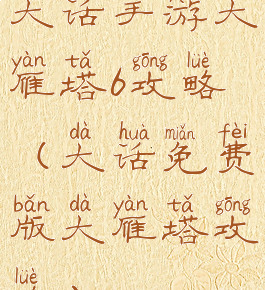 大话手游大
yàn tǎ gōng lüè
雁塔6攻略
dà huà miǎn fèi
(大话免费
bǎn dà yàn tǎ gōng
版大雁塔攻
lüè